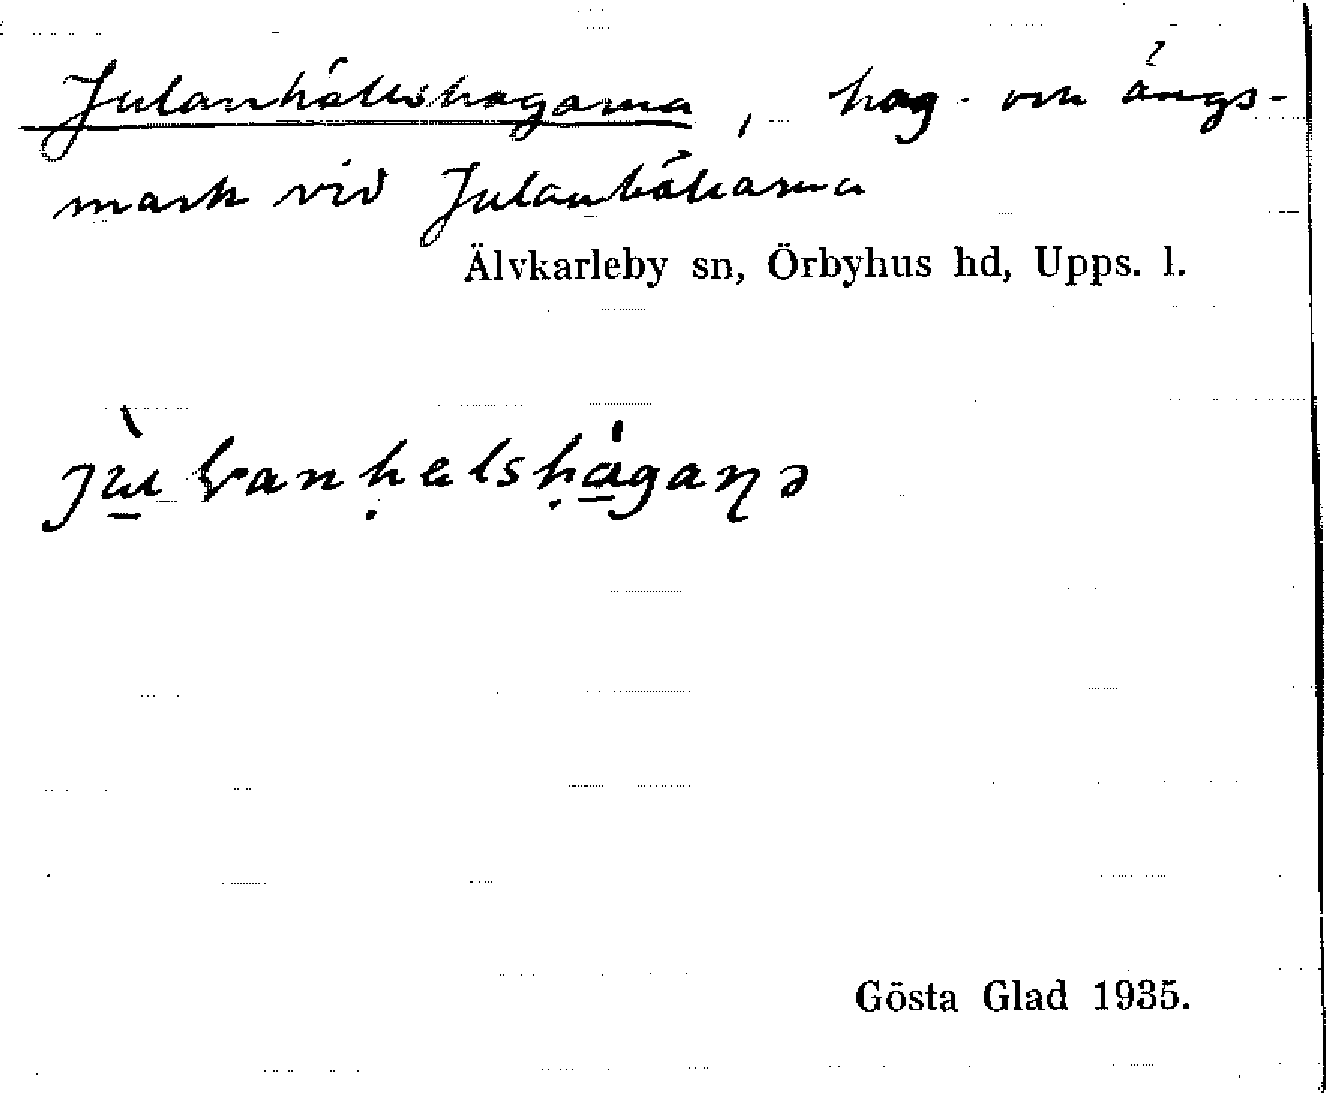 Julanhällshagarna, hag- och ängs-
mark vid Julanhällarna
Älvkarleby sn, Örbyhus hd, Upps. l.
Gösta Glad 1935.